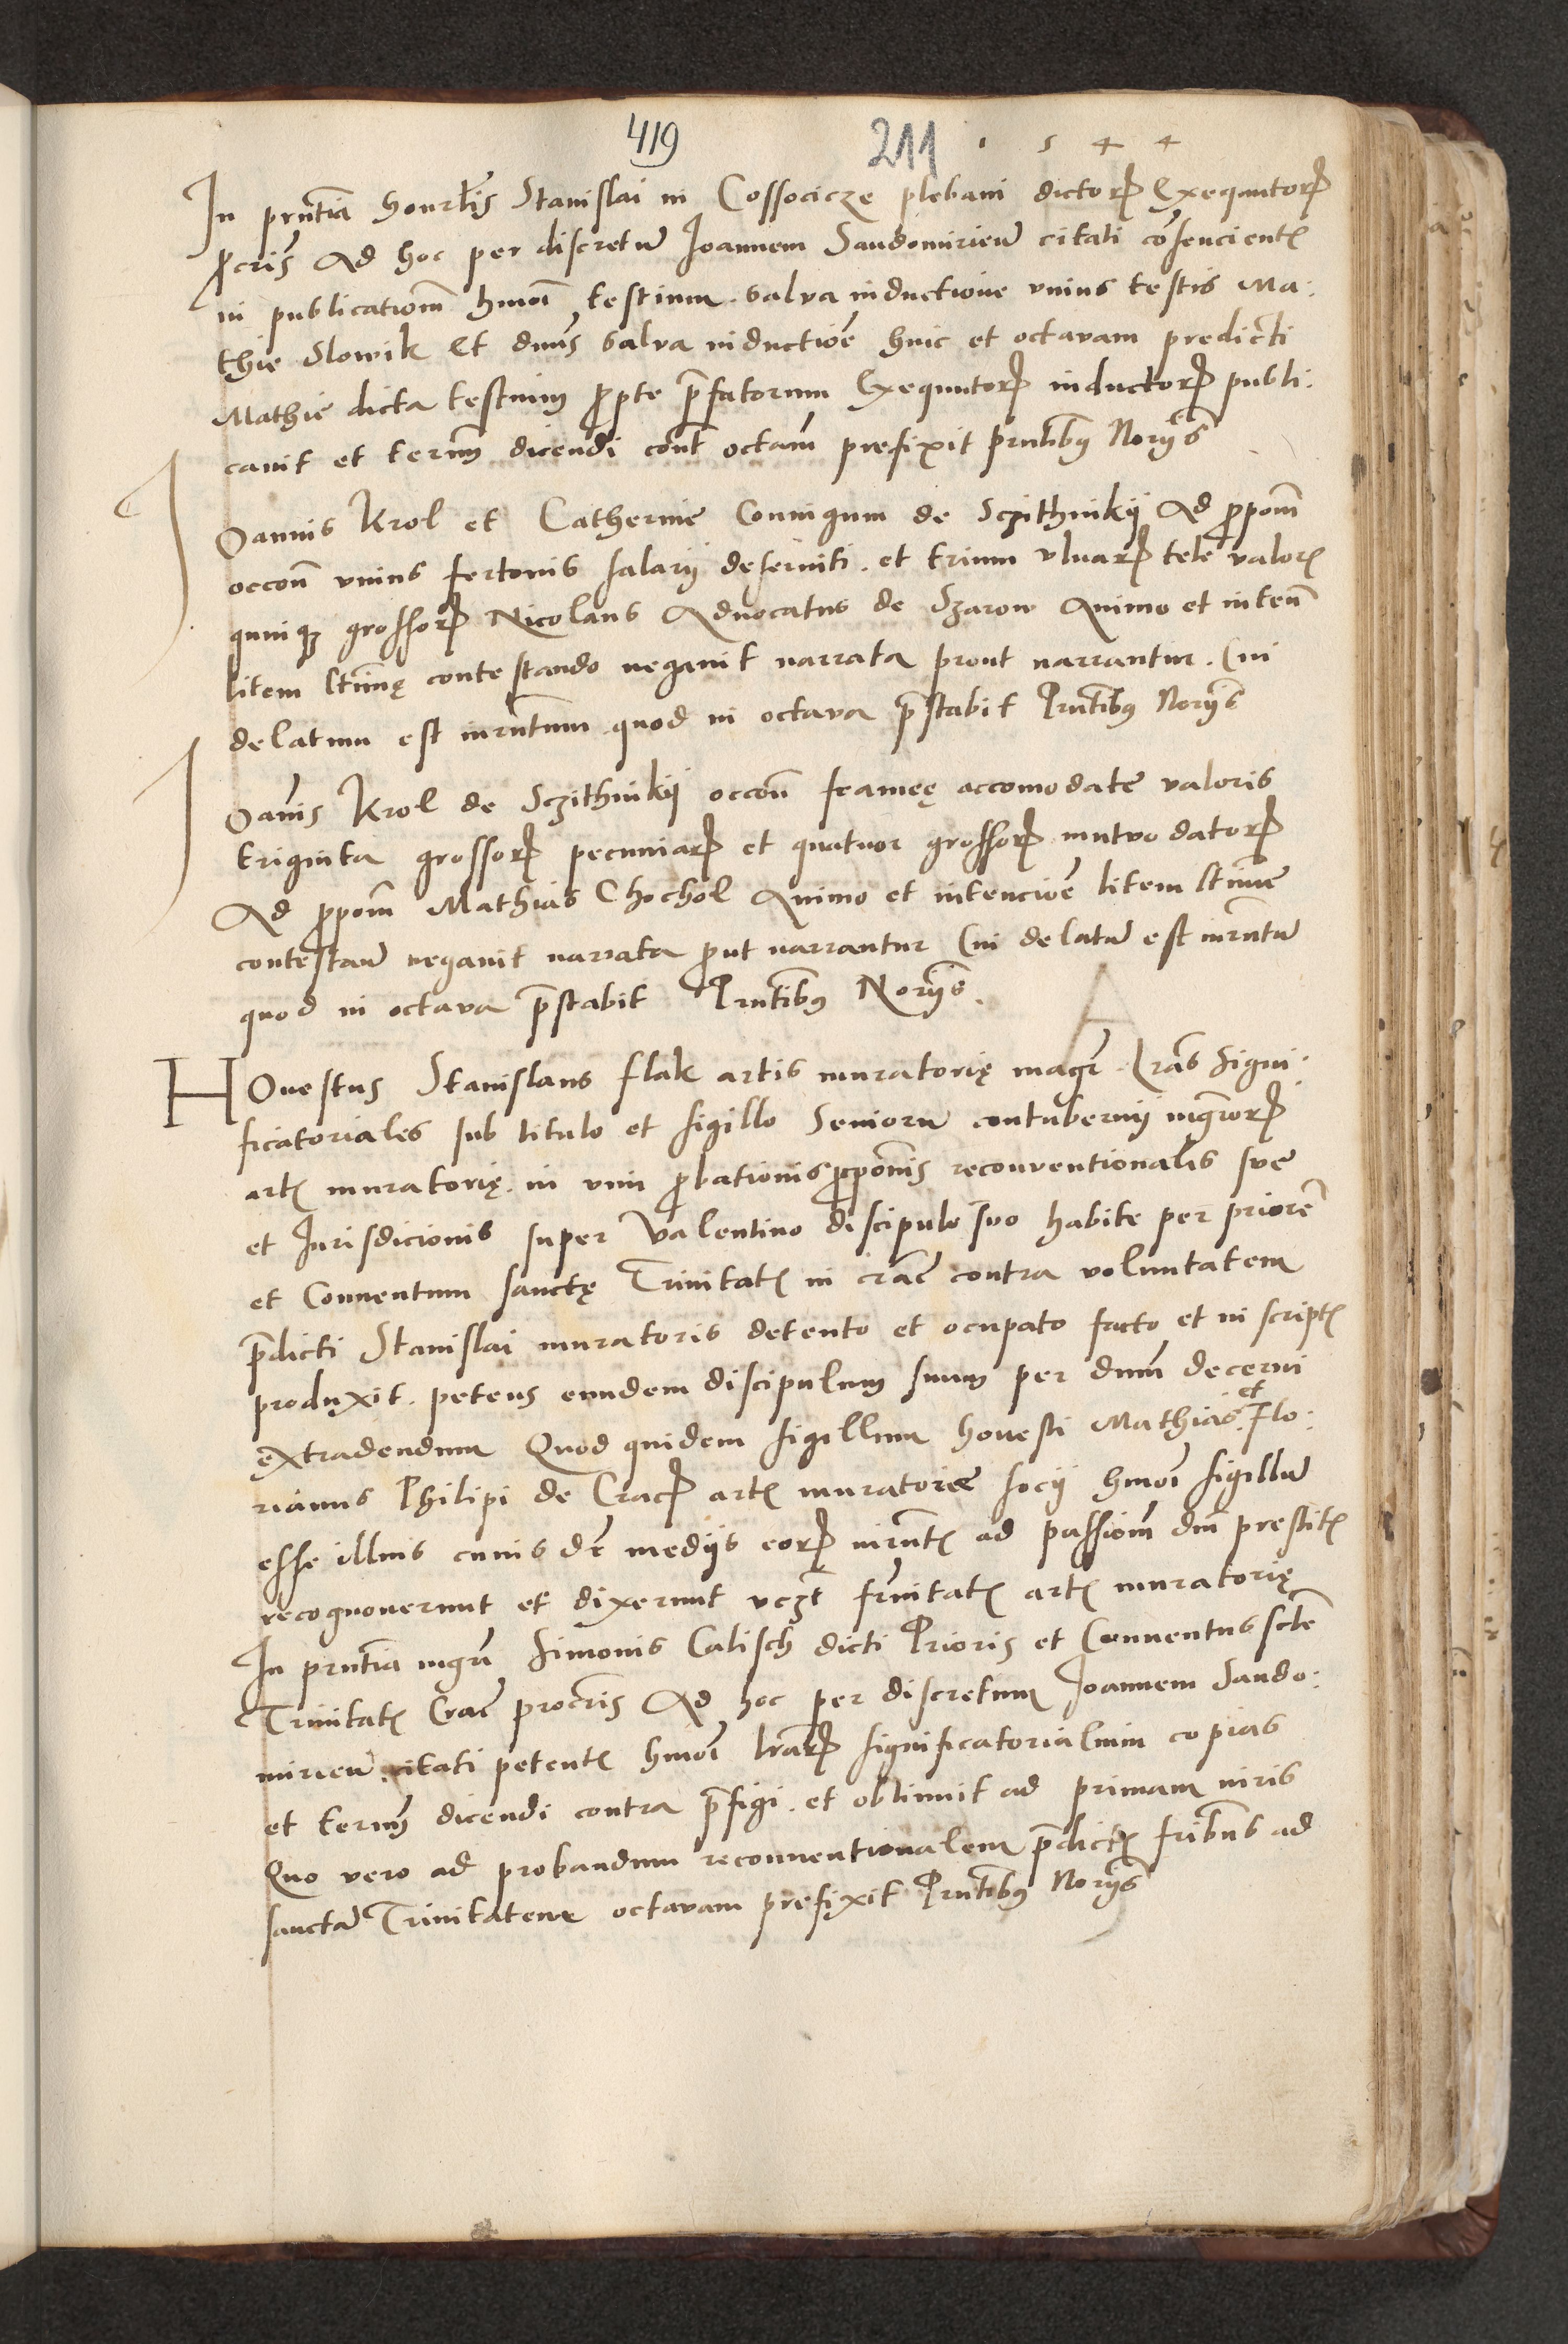 419 211 1 5 4 4
In pñtia honrlis Stanislai in Cossocicze plebani dictorꝝ Exequtorꝝ
ꝓcris Ad hoc per discretū Joannem Sandomirieñ citati cōsencientꝭ
in publicationē hmōi testium. salva inductione unius testis Ma:
thie Slowik Et dnus salva inductiōe huic et octavam predicti
Mathie dicta testium ꝓ pte p̄fatorum Exequutorꝝ inductorꝝ publi:
cavit et termñ dicendi cont̄ octavā prefixit pñtibus Noriis
Joannis Krol et Catherine Coniugum de Sczithnikÿ Ad ꝓpoñem
occoñe unius fertonis salarÿ deserviti. et trium ulnarꝝ tele valorꝭ
quinqꝫ grossorꝝ Nicolaus Advocatus de Szarow Animo et inteñ
litem ltimę contestando negavit narrata prout narrantur. Cui
delatum est iurñtum quod in octava p̄stabit Pñtibus Noriis
Joānis Krol de Sczithnikÿ occoñe frameę accomodate valoris
triginta grossorꝝ pecuniarꝝ et quatuor grossorꝝ mutuo datorꝝ
Ad ꝓpoñem Mathias Chochol Animo et intencioē litem ltimme
contestañ negavit narrata ꝓut narrantur Cui delatū est iurñtū
quod in octava p̄stabit Pñtibus Noriis.
A
Honestus Stanislaus flak artis muratorię magr̄ Lrās signi:
ficatoriales sub titulo et sigillo Seniorū contubernÿ mgrorꝝ
artꝭ muratorię. in vim ꝓbationis ꝓpoñis reconventionalis sue
et Jurisdicionis super Valentino discipulo suo habite per priorē
et Conventum sanctę Trinitatꝭ in crac̄ contra voluntatem
p̄dicti Stanislai muratoris detento et ocupato facto et in scriptꝭ
produxit. petens eundem discipulum suum per dnum decerni
extradendum Quod quidem sigillum honesti Mathias. et Flo:
rianus Philipi de Cracꝝ artꝭ muratorie socÿ hmōi sigillū
esse illius cuius de medÿs eorꝝ iurñtꝭ ad passionē dni prestitꝭ
recognoverunt et dixerunt vczt̄ frnitatꝭ artꝭ muratorię
In pñtia mgri Simonis Calisch dicti Prioris et Conventus scte
Trinitatꝭ Crac̄ procris Ad hoc per discretum Joannem Sando:
mirieñ. citati petentꝭ hmōi lrarꝝ significatorialium copias
et termñ dicendi contra p̄figi. et obtinuit ad primam iuris
Quo vero ad probandum reconventionalem p̄dictꝭ fribus ad
sanctā Trinitatem octavam prefixit Pñtibus Noriis